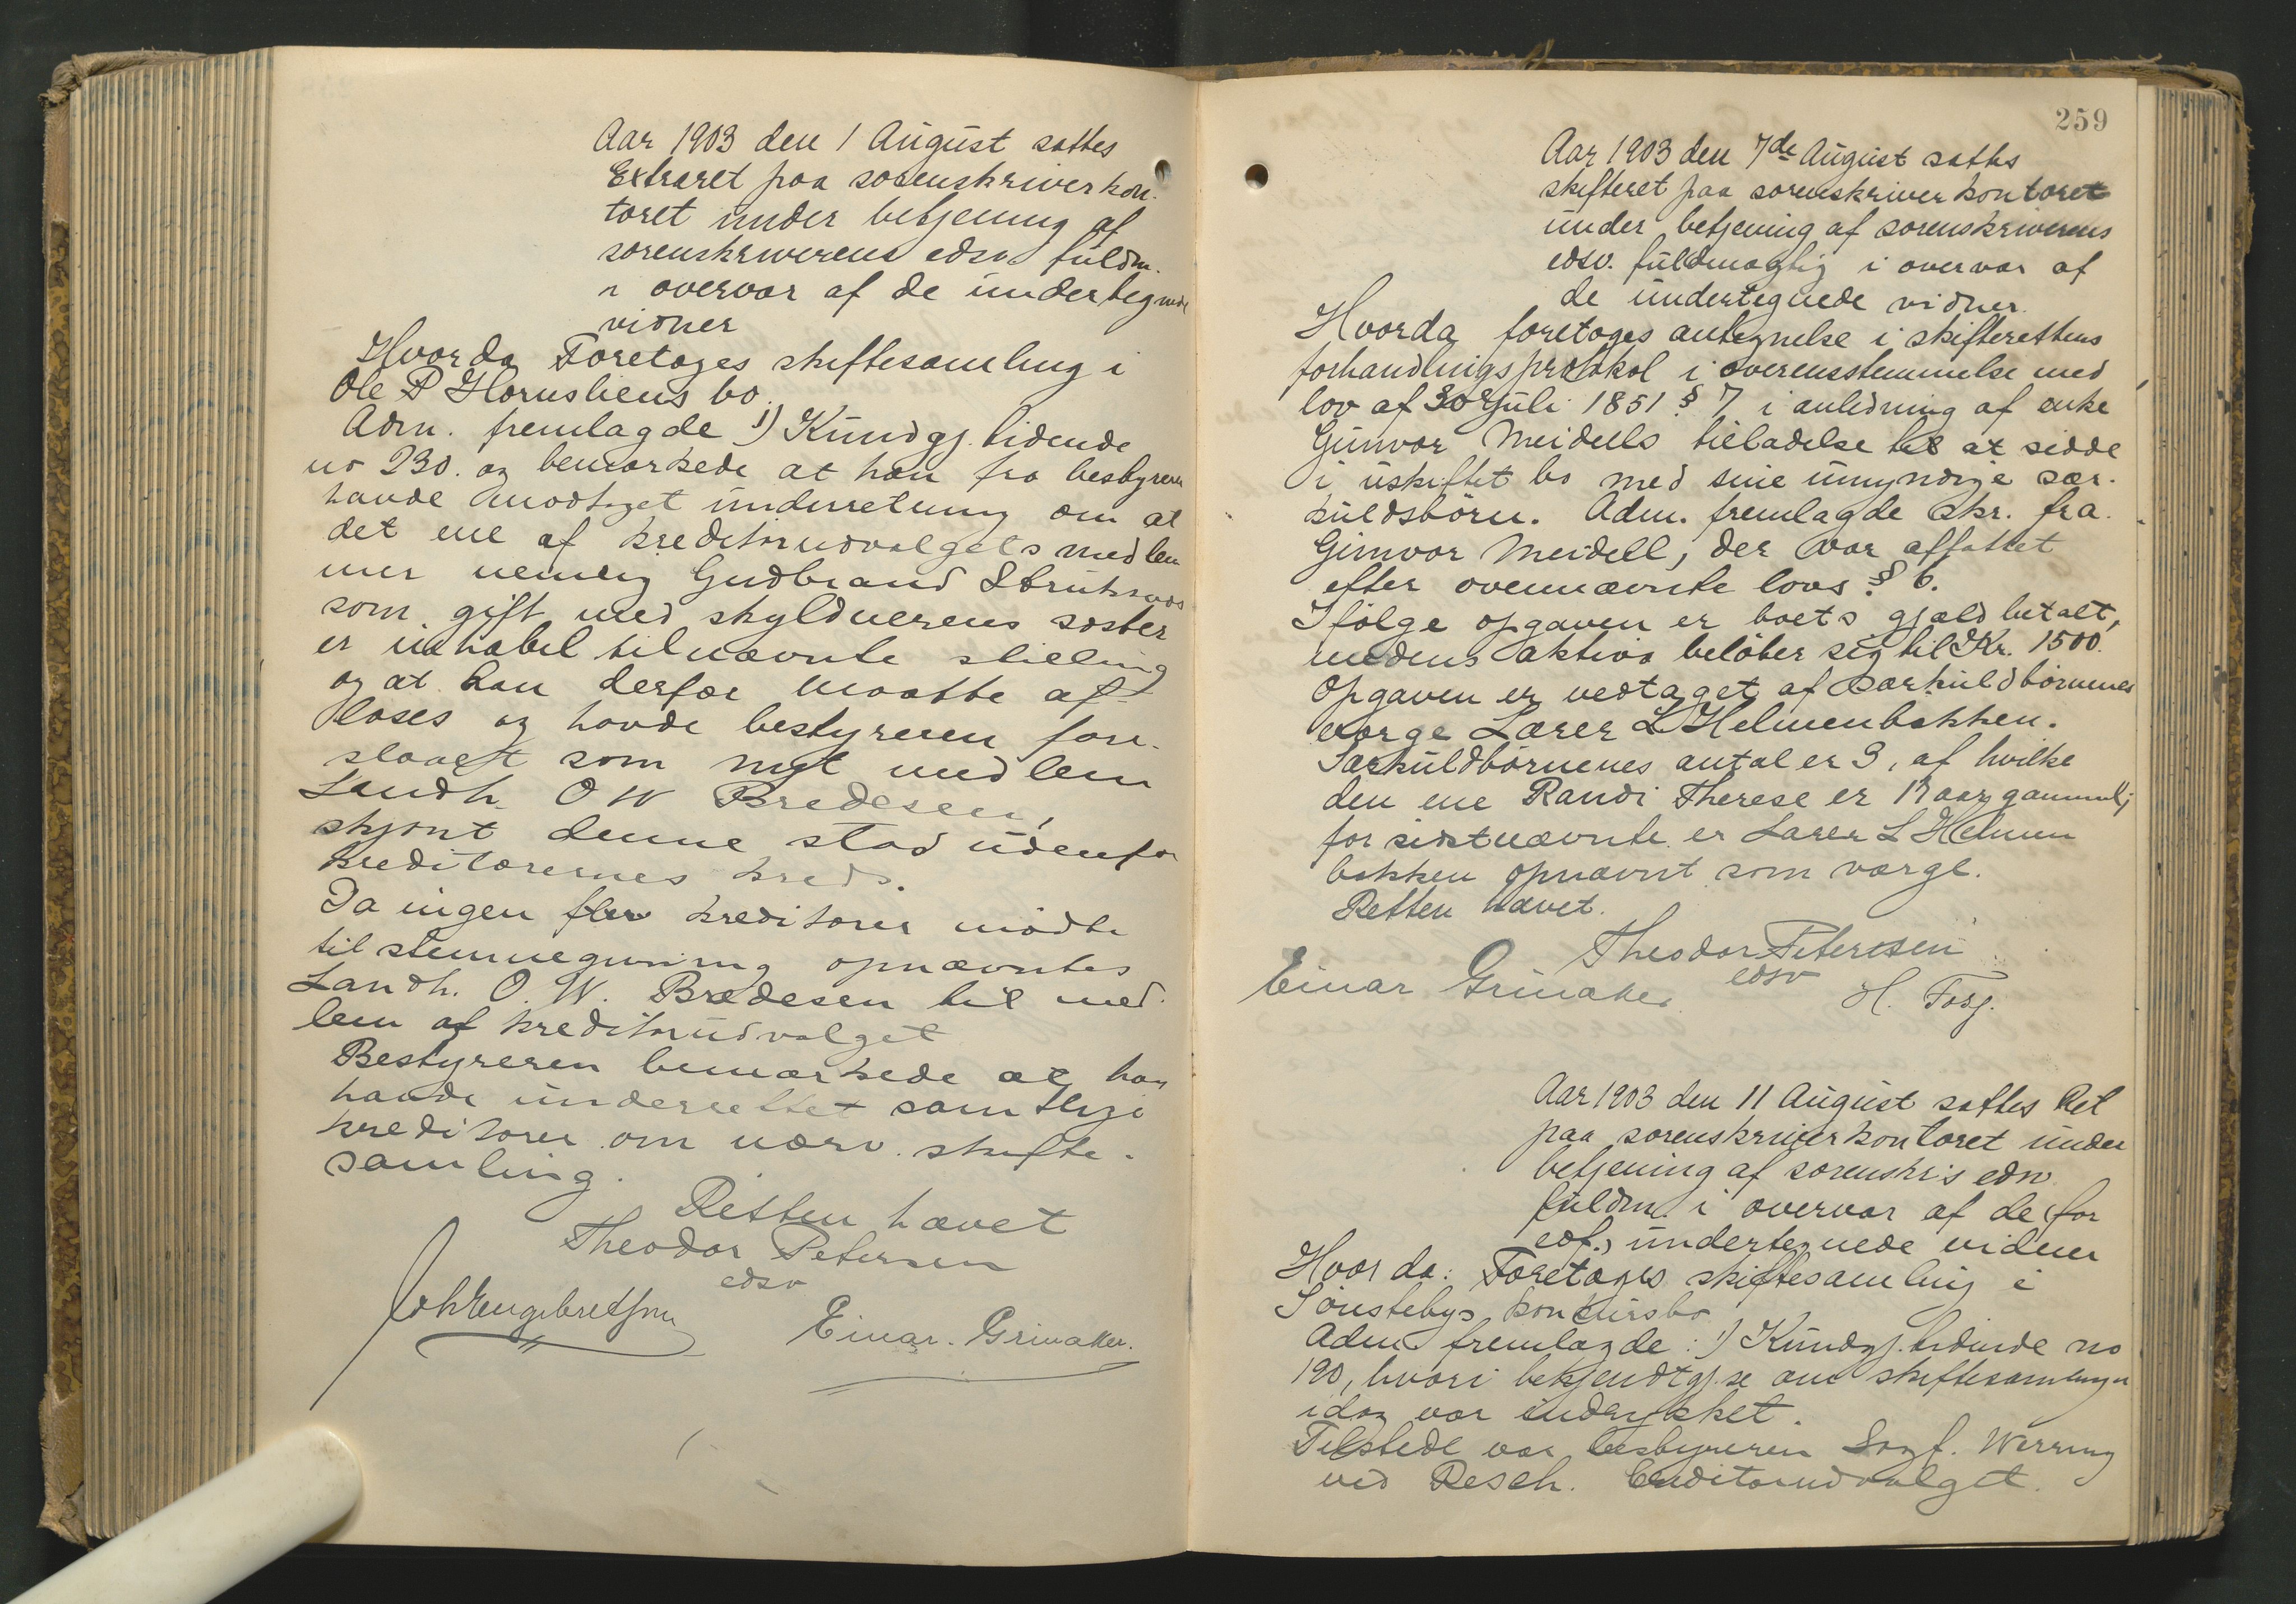 Aar 1903 den 1 August sattes
Extraret paa sorenskriverkon-
toret under betjening af
sorenskriverens edsv fuldm.
i overvær af de undertegnede
vidner
Hvorda Foretoges skiftesamling i
Ole P Hornsliens bo.
Adm. fremlagde 1) Kundgj. tidende
no 230. og bemærkede at han fra bestyreren
havde modtaget underretning om at
det ene af kreditorudvalgets medlem
mer nemlig Gudbrand
som gift med skyldnerens søster
er inhabil til nævnte stilling
og at han derfor maatte af-
løses og havde bestyreren fore-
slaaet som nyt medlem
Landh. O W Bredesen,
skjønt denne stod udenfor
kreditorernes kreds.
Da ingen flere kreditorer mødte
til stemmegivning opnævntes
Landh. O. W. Bredesen til med-
lem af kreditorudvalget
Bestyreren bemærkede at han
havde underrettet samtlige
kreditorer om nærv. skifte-
samling.
Retten hævet
Theodor Petersen
edsv
Joh Engebretsen Einar Grinaker.
259
Aar 1903 den 7de August sattes
skifteret paa sorenskriverkontoret
under betjening af sorenskriverens
edsv. fuldmægtig i overvær af
de undertegnede vidner.
Hvorda foretoges antegnelse i skifterettens
forhandlingsprotokol i overensstemmelse med
lov af 30 Juli 1851 § 7 i anledning af enke
Gunvor Meidells tilladelse til at sidde
i uskiftet bo med sine umyndige sær-
kuldsbørn. Adm. fremlagde skr. fra
Gunvor Meidell, der var affattet
efter ovennævnte lovs § 6.
Ifølge opgaven er boets gjæld betalt,
medens aktiva beløber sig til Kr. 1500.
Opgaven er vedtaget af særkuldbørnenes
værge Lærer L Helmenbakken.
Særkuldbørnenes antal er 3, af hvilke
den ene Randi Therese er aar gammel;
for sidstnævnte er Lærer L Helmen
bakken opnævnt som værge.
Retten hævet.
Theodor Petersen
edsv
Einar Grinaker H. Fosg.
Aar 1903 den 11 August sattes Ret
paa sorenskriverkontoret under
betjening af sorenskr's edsv.
fuldm. i overvær af de (for
edf.) undertegnede vidner
Hvorda: Foretoges skiftesamling i
Sønstebys konkursbo
Adm fremlagde: 1) Kundgj. tidende no
190, hvori bekjendtgj.se om skiftesamlingen
idag var indrykket.
Tilstede var bestyreren Sagf. Werring
ved Resch. Creditorudvalget.